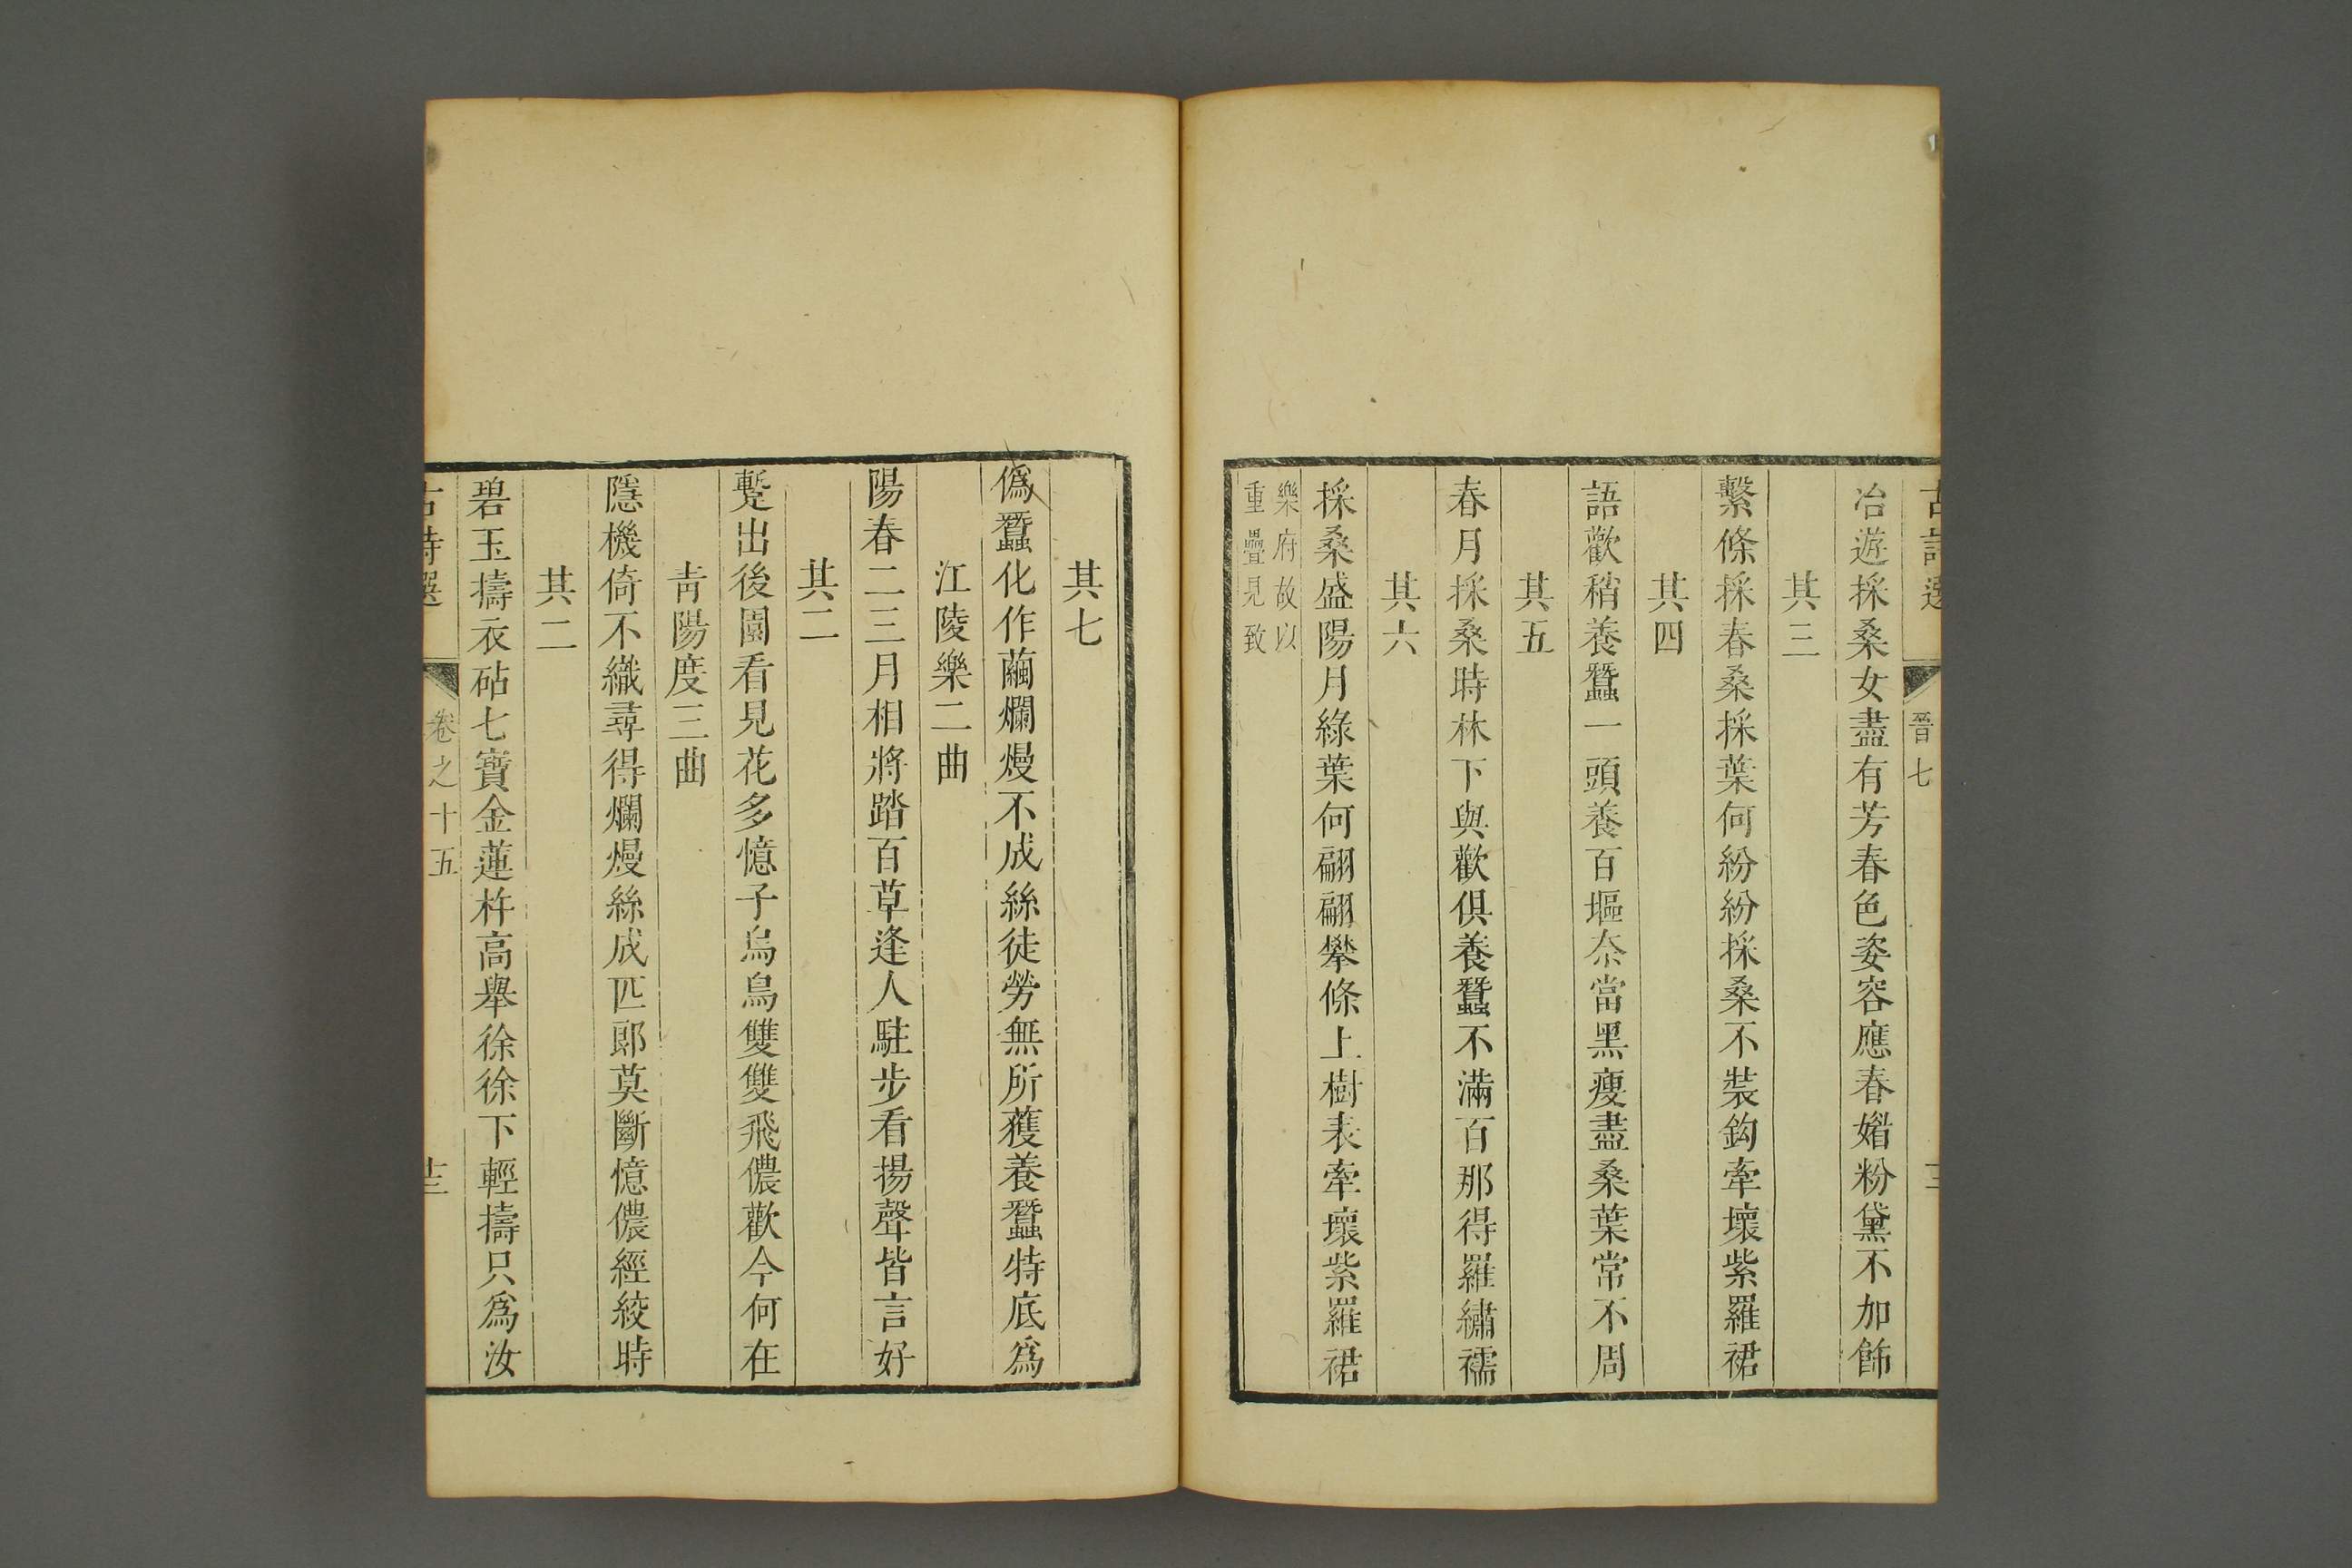 古詩選
晉七
冶遊採桑女盡有芳春色姿容應春媚粉黛不加飾
其三
繫條採春桑採葉何紛紛採桑不裝鈎牽壞紫羅裙
其四
語歡稍養蠶一頭養百塸奈當黑瘦盡桑葉常不周
其五
春月採桑時林下與歡俱養蠶不滿百那得羅繡襦
其六
採桑盛陽月綠葉何翩翩攀條上樹表牽壞紫羅裙
樂府故以
重疊見致
其七
偽蠶化作繭爛熳不成絲徒勞無所獲養蠶特底爲
江陵樂二曲
陽春二三月相將踏百草逢人駐步看揚聲皆言好
其二
蹔出後園看見花多憶子烏鳥雙雙飛儂歡今何在
青陽度三曲
隱機倚不織尋得爛熳絲成匹郎莫斷憶儂經絞時
其二
碧玉擣衣砧七寶金蓮杵高舉徐徐下輕擣只爲汝
古詩選
卷之十五